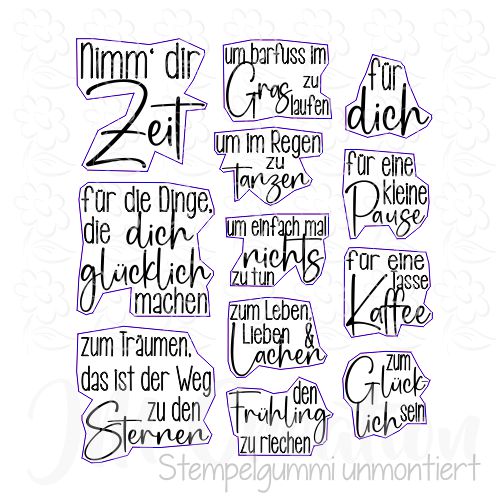 Nimm' dir
Zeit
für die Dinge,
die dich
glücklich
machen
zum Träumen,
das ist der Weg
zu den
Sternen
um barfuss im
Gras zu
laufen
um im Regen
zu
tanzen
um einfach mal
nichts
zu tun
zum Leben,
Lieben &
Lachen
den
Frühling
zu riechen
für
dich
für eine
kleine
Pause
für eine
Tasse
Kaffee
zum
Glück-
lich sein
Stempelgummi unmontiert